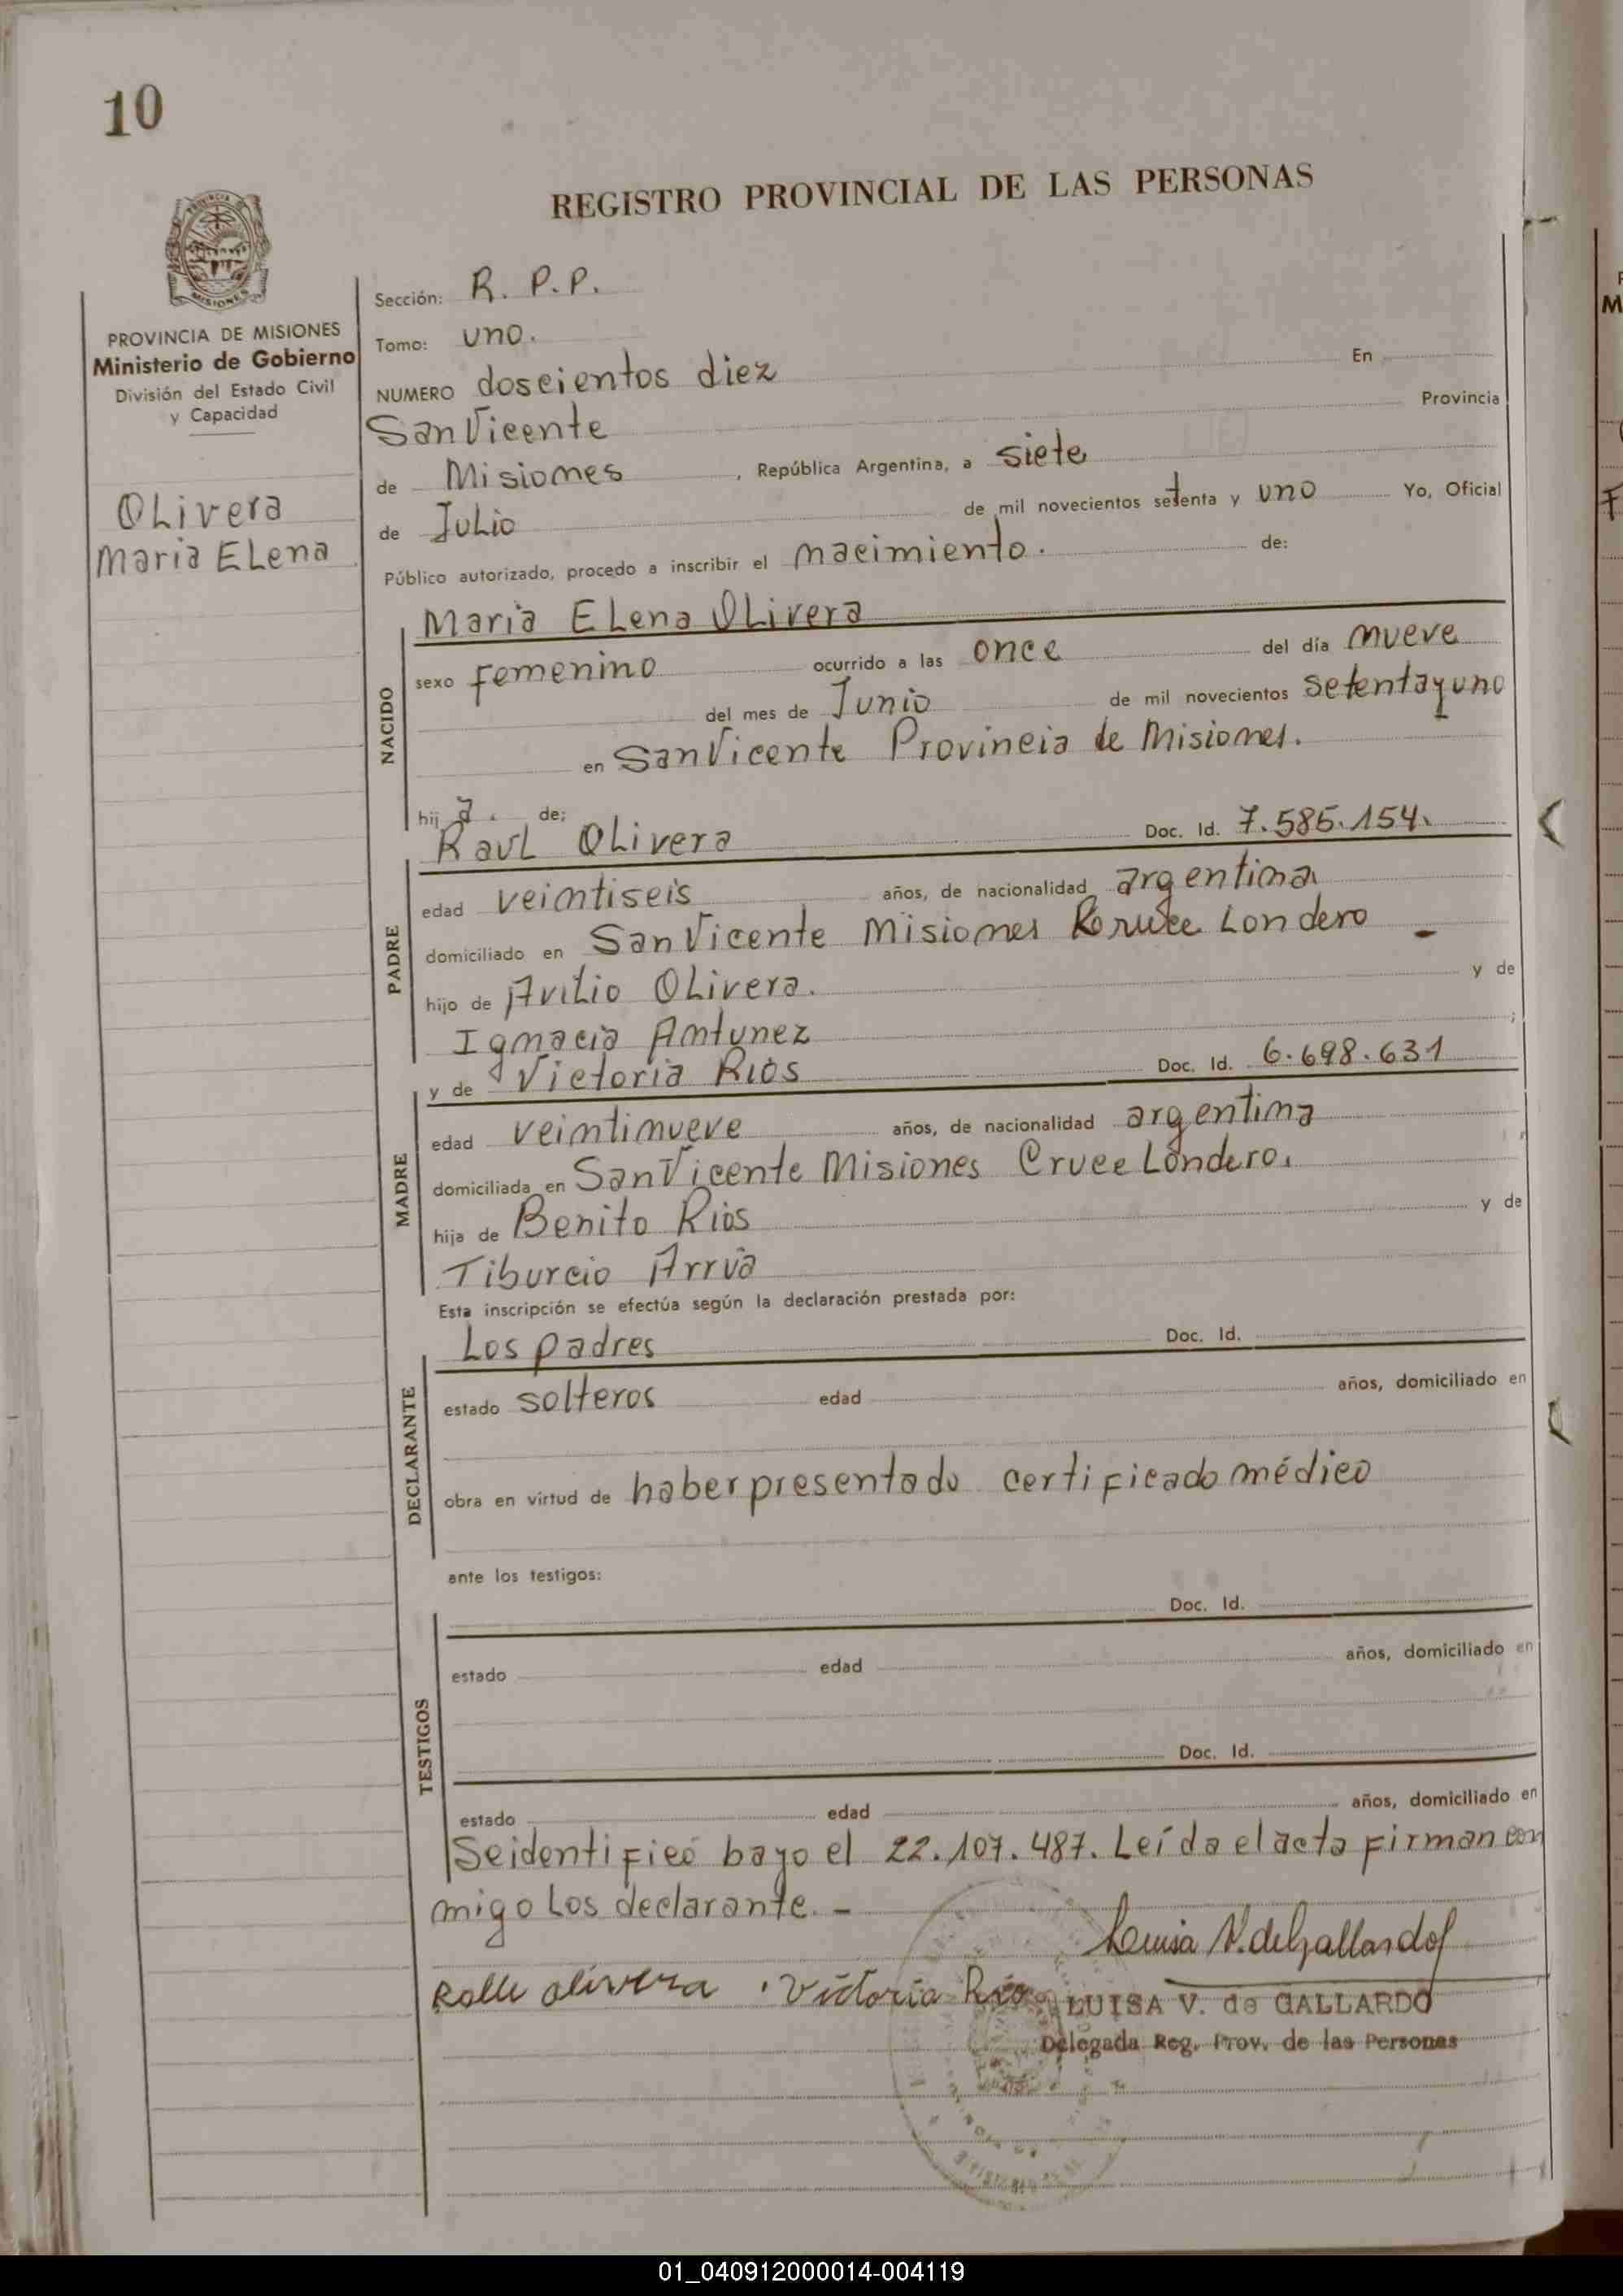 10
REGISTRO PROVINCIAL DE LAS PERSONAS
PROVINCIA DE MISIONES
Ministerio de Gobierno
División del Estado Civil
y Capacidad
Olivera
Maria Elena
Sección: R. P. P.
Tomo: uno.
NUMERO doscientos diez En
San Vicente Provincia
de Misiones, República Argentina, a siete
de Julio de mil novecientos setenta y uno Yo, Oficial
Público autorizado, procedo a inscribir el nacimiento. de:
NACIDO
Maria Elena Olivera
sexo femenino ocurrido a las once del día nueve
del mes de Junio de mil novecientos setenta y uno
en San Vicente Provincia de Misiones.
hij a. de:
PADRE
Raul Olivera Doc. Id. 7.585.154.
edad veintiseis años, de nacionalidad argentina
domiciliado en San Vicente Misiones Londero -
hijo de Avilio Olivera. y de
Ignacia Antunez ;
MADRE
y de Victoria Rios Doc. Id. 6.698.631
edad veintinueve años, de nacionalidad argentina
domiciliada en San Vicente Misiones Cruce Londero.
hija de Benito Rios y de
Tiburcio Arrua
Esta inscripción se efectúa según la declaración prestada por:
DECLARANTE
Los padres Doc. Id.
estado solteros edad años, domiciliado en
obra en virtud de haber presentado certificado médico
ante los testigos:
TESTIGOS
Doc. Id.
estado edad años, domiciliado en
Doc. Id.
estado edad años, domiciliado en
Se identificó bajo el 22.107.487. Leída el acta firman con
migo los declarante. -
Luisa V. de Gallardo
Olivera . Victoria Rios
LUISA V. de GALLARDO
Delegada Reg. Prov. de las Personas
01_040912000014-004119